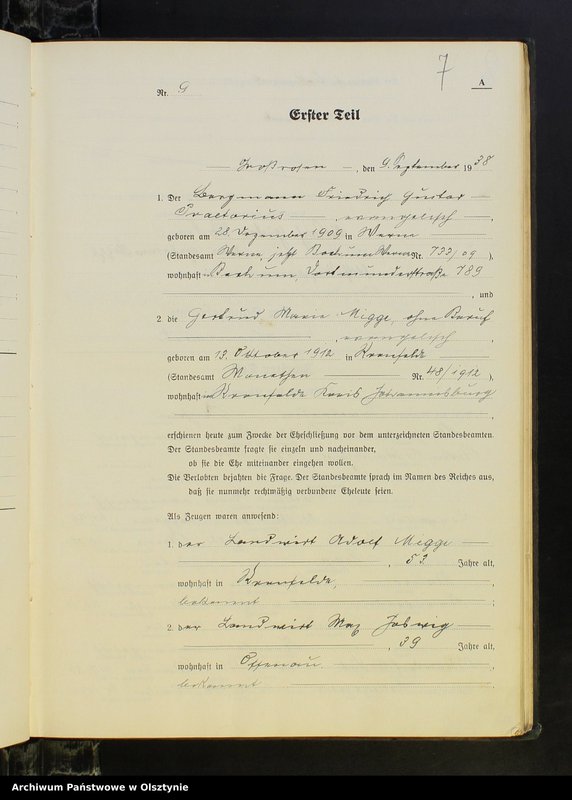 7
A
Nr. 9
Erster Teil
Großrosen, den 9. September 1938
1. Der Bergmann Friedrich Gustav
Praetorius, evangelisch,
geboren am 28. Dezember 1909 in Werne
(Standesamt Werne, jetzt Bochum Werne Nr. 733/09),
wohnhaft in Bochum, Dortmunderstraße 189
, und
2. die Gertrud Marie Migge, ohne Beruf
, evangelisch,
geboren am 13. Oktober 1912 in Kronfelde
(Standesamt Monethen Nr. 48/1912),
wohnhaft in Kronfelde Kreis Johannisburg
,
erschienen heute zum Zwecke der Eheschließung vor dem unterzeichneten Standesbeamten.
Der Standesbeamte fragte sie einzeln und nacheinander,
ob sie die Ehe miteinander eingehen wollen.
Die Verlobten bejahten die Frage. Der Standesbeamte sprach im Namen des Reiches aus,
daß sie nunmehr rechtmäßig verbundene Eheleute seien.
Als Zeugen waren anwesend:
1. der Landwirt Adolf Migge
, 53 Jahre alt,
wohnhaft in Kronfelde,
bekannt;
2. der Landwirt Max Jobwig
, 39 Jahre alt,
wohnhaft in Offenau,
bekannt
Archiwum Państwowe w Olsztynie